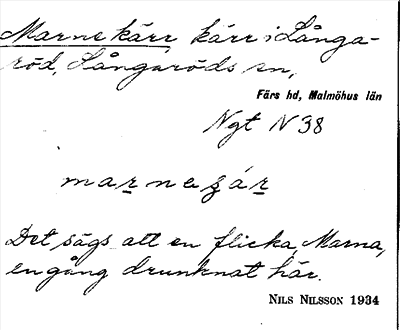 Marnekärr, kärr i Långa-
röd, Långaröds sn,
Färs hd, Malmöhus län
Ngt N 38
marnegár
Det sägs att en flicka, Marna,
en gång drunknat här.
NILS NILSSON 1934